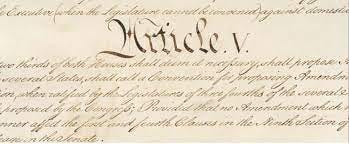 Executive (when the Legislature cannot be convened) against domestic
Article. V.
two thirds of both Houses shall deem it necessary, shall propose
several States, shall call a Convention for proposing Amendm
when ratified by the Legislatures of three fourths of the several
proposed by the Congress; Provided that no Amendment which
nner affect the first and fourth Clauses in the Ninth Section of
age in the Senate.